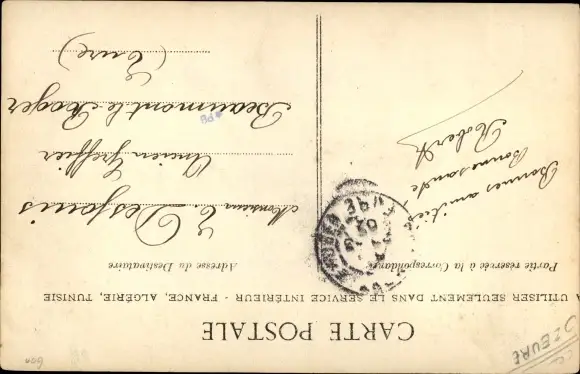 CARTE POSTALE
A UTILISER SEULEMENT DANS LE SERVICE INTÉRIEUR - FRANCE, ALGÉRIE, TUNISIE
Partie réservée à la Correspondance
Adresse du Destinataire
Bonnes amitiés,
Bonne santé
Robert
Monsieur E. Desjouis
Ancien Greffier
Beaumont le Roger
(Eure)